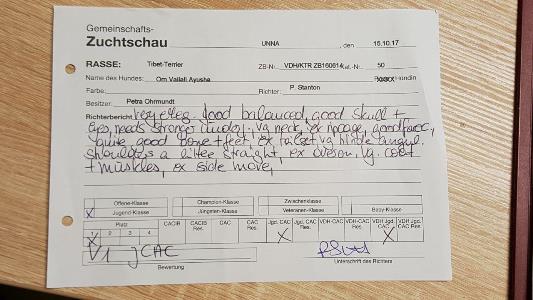 Gemeinschafts-
Zuchtschau UNNA , den 15.10.17
RASSE: Tibet-Terrier ZB-Nr. VDH/KTR ZB160614 Kat.-Nr. 50
Name des Hundes: Om Vailali Ayushe Hündin
Farbe: Richter: P. Stanton
Besitzer: Petra Ohrmundt
Richterbericht very eleg. good balanced, good skull +
eyes, needs stronger vg neck, ex
quite good bone + feet, ex tailset vg hinde angul.
shoulders a little straight, ex vg. coat
+ muskles, ex side move,
Offene-Klasse Champion-Klasse Zwischenklasse
X Jugend-Klasse Jüngsten-Klasse Veteranen-Klasse Baby-Klasse
Platz CACIB CACIB Res. CAC CAC Res. Jgd. CAC Jgd. CAC Res. VDH-CAC VDH-CAC Res. VDH Jgd. CAC VDH Jgd. CAC Res.
1 2 3 4
X X X
V1 jCAC
Bewertung Unterschrift des Richters